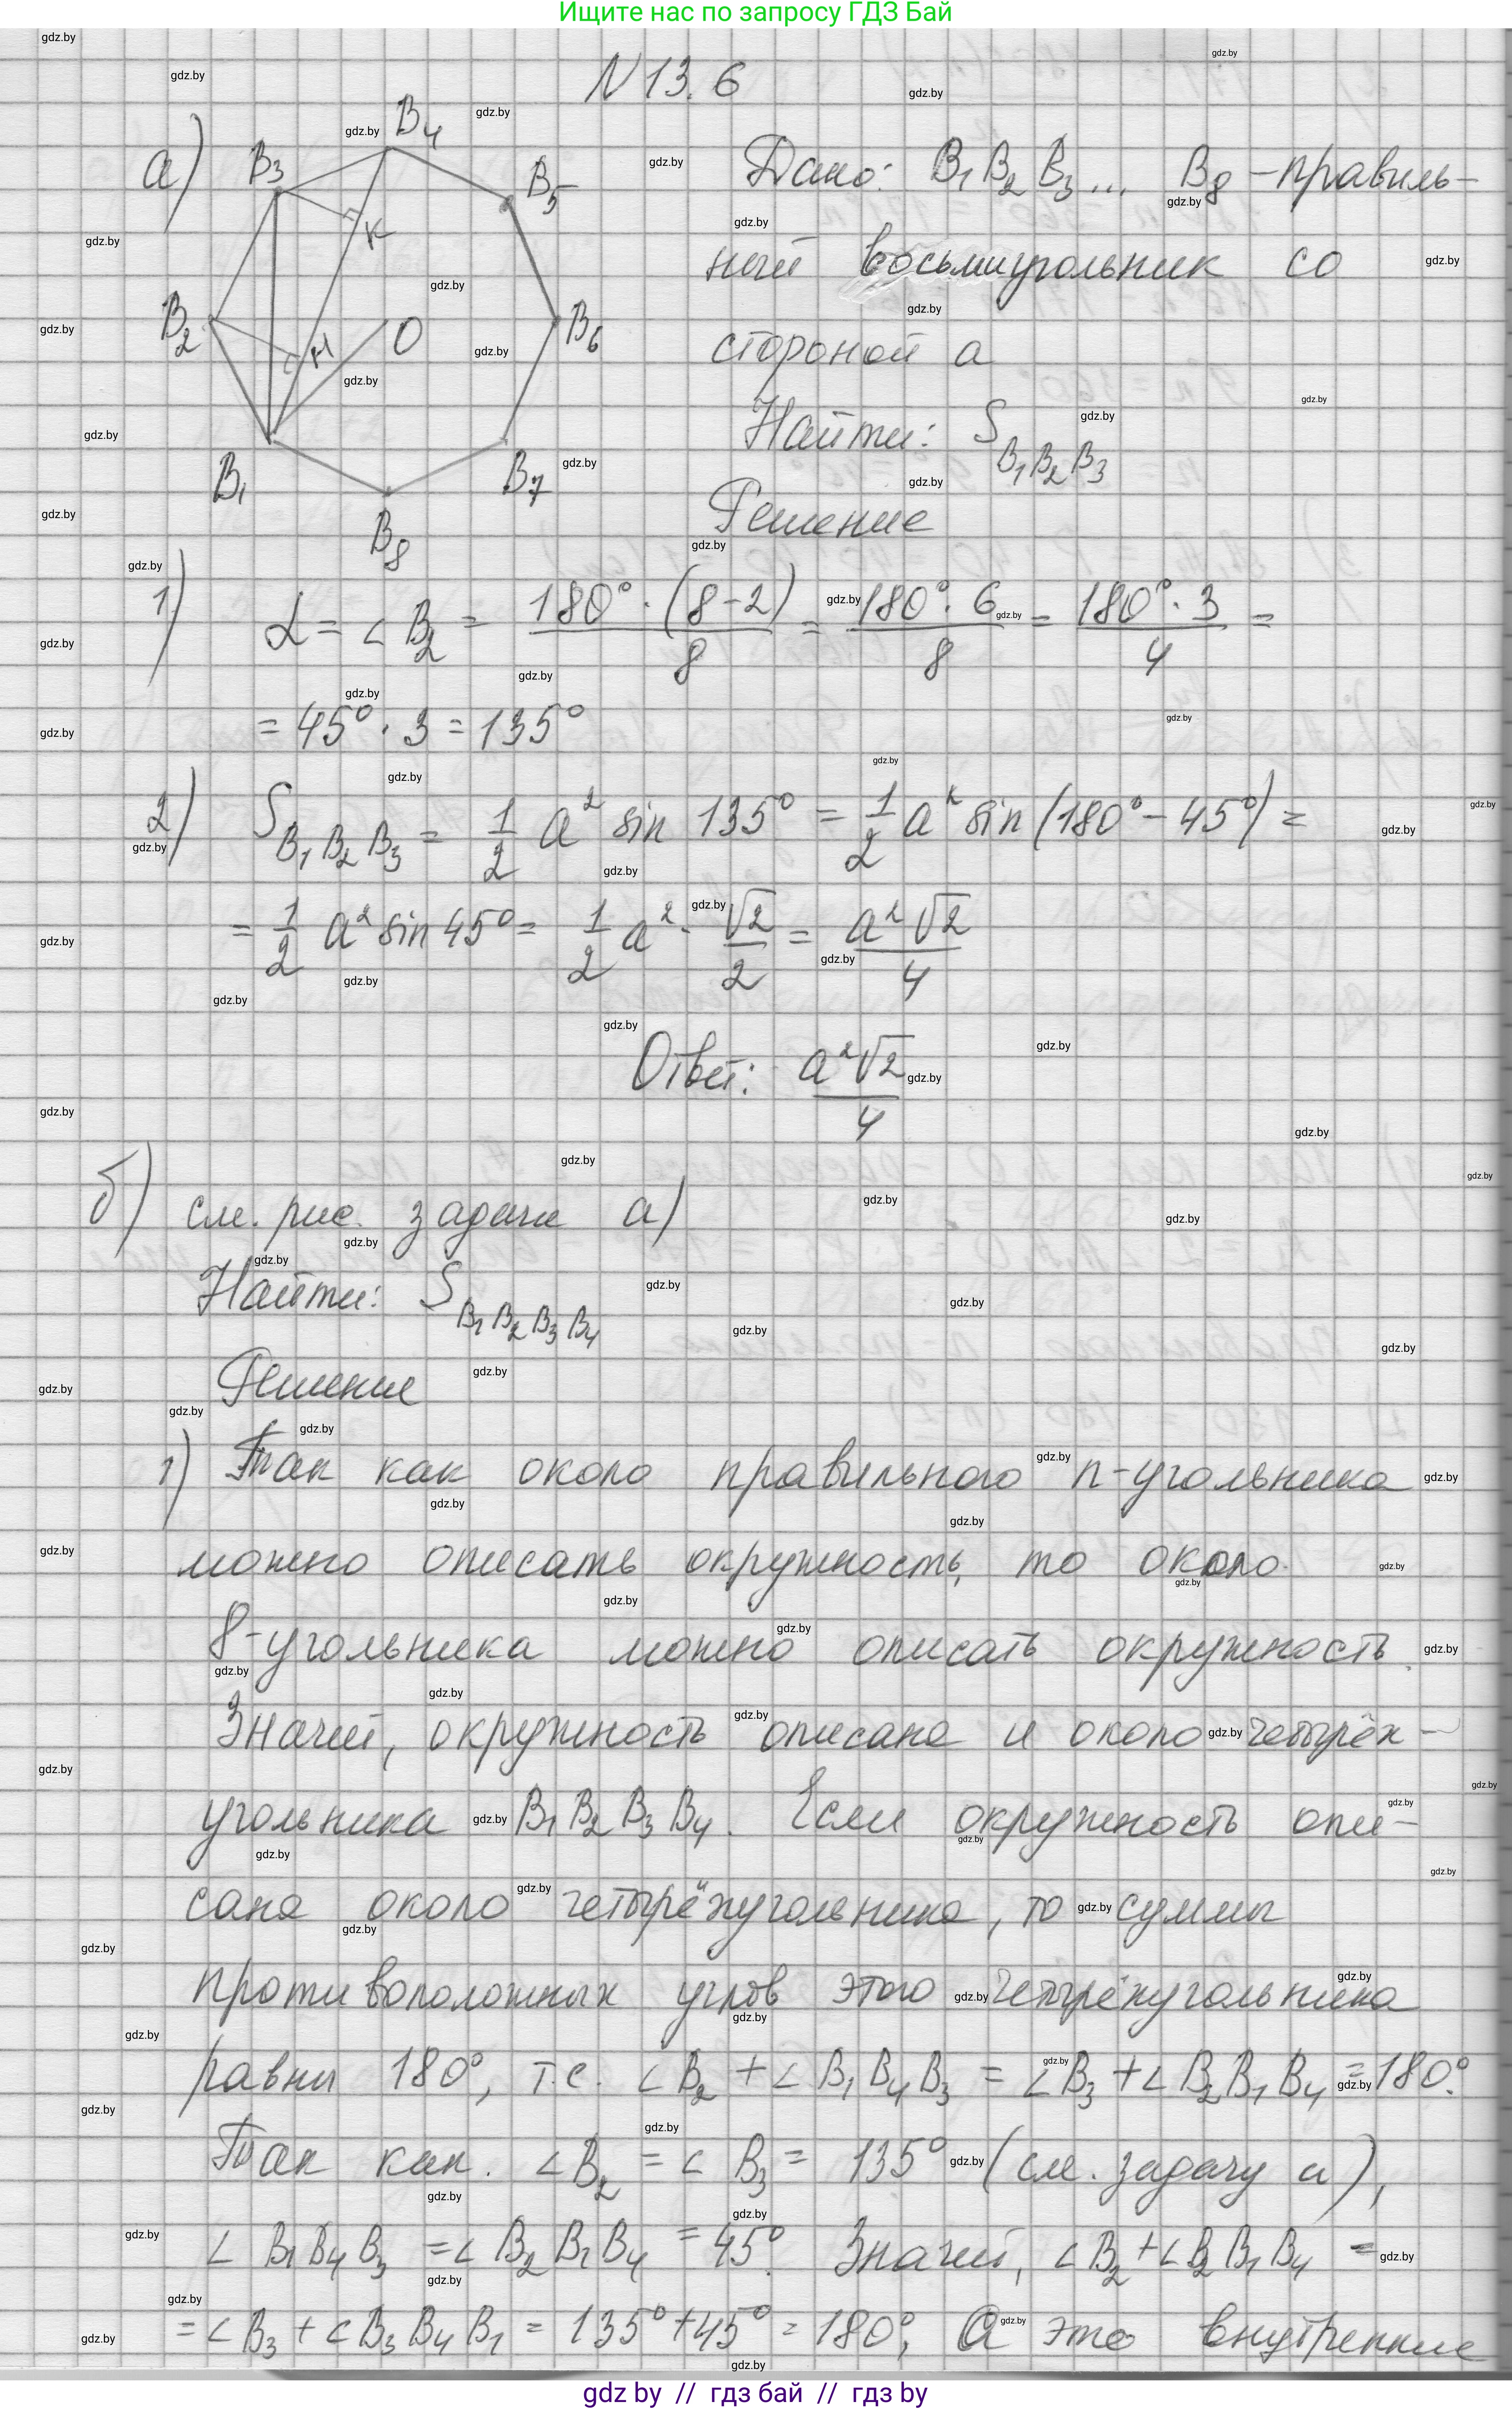 Ищите нас по запросу ГДЗ Бай
N 13.6
а)
B3
B4
B5
K
B2
H
O
B6
B1
B7
B8
Дано: B1 B2 B3 ... B8 – правиль-
ный восьмиугольник со
стороной a
Найти: S B1B2B3
Решение
1) α = ∠B2 = 180°·(8-2)/8 = 180°·6/8 = 180°·3/4 =
= 45°·3 = 135°
2) S B1B2B3 = 1/2 a² sin 135° = 1/2 a² sin(180°-45°) =
= 1/2 a² sin 45° = 1/2 a² · √2/2 = a²√2/4
Ответ: a²√2/4
б) см. рис. задачи а)
Найти: S B1B2B3B4
Решение
1) Так как около правильного n-угольника
можно описать окружность, то около
8-угольника можно описать окружность.
Значит, окружность описана и около четырёх-
угольника B1B2B3B4. Если окружность опи-
сана около четырёхугольника, то суммы
противоположных углов этого четырёхугольника
равны 180°, т.е. ∠B2 + ∠B1B4B3 = ∠B3 + ∠B2B1B4 = 180°.
Так как. ∠B2 = ∠B3 = 135° (см. задачу а),
∠B1B4B3 = ∠B2B1B4 = 45°. Значит, ∠B2 + ∠B2B1B4 =
= ∠B3 + ∠B3B4B1 = 135° + 45° = 180°, А это внутренние
gdz by // гдз бай // гдз by